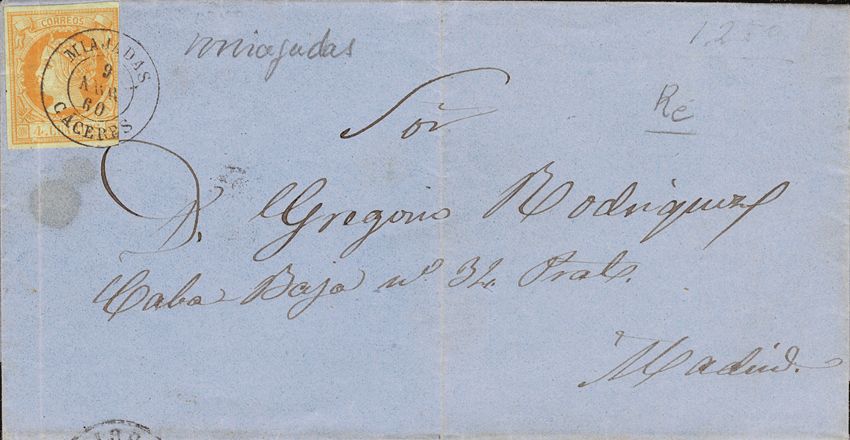 CORREOS
MIAJADAS
9
ABR
60
CACERES
miajadas
Ré
Sor
D. Gregorio Rodriguez
Caba Baja nº 32. Pral.
Madrid.